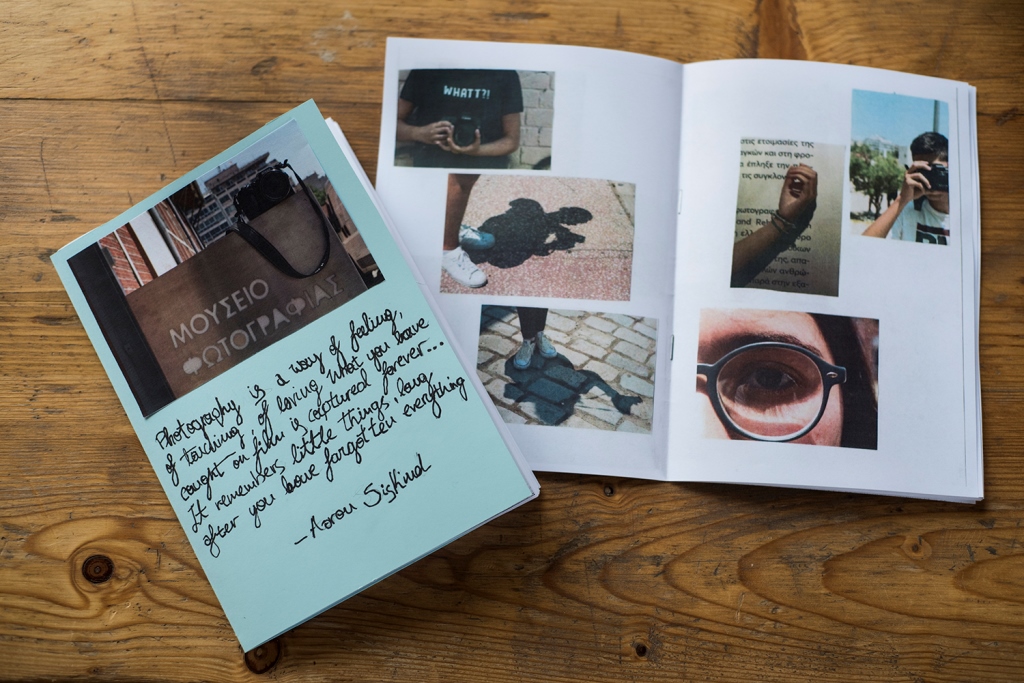 ΜΟΥΣΕΙΟ
ΦΩΤΟΓΡΑΦΙΑΣ
Photography is a way of feeling,
of touching, of loving. What you have
caught on film is captured forever...
It remembers little things, long
after you have forgotten everything
- Aaron Siskind
WHATT?!
στις ετοιμασίες της
αγκών και στη φρο-
έπληξε την
τις συγκλο
φωτογραφ
and Rel
της, απα-
ανθρώ-
στην εξα-